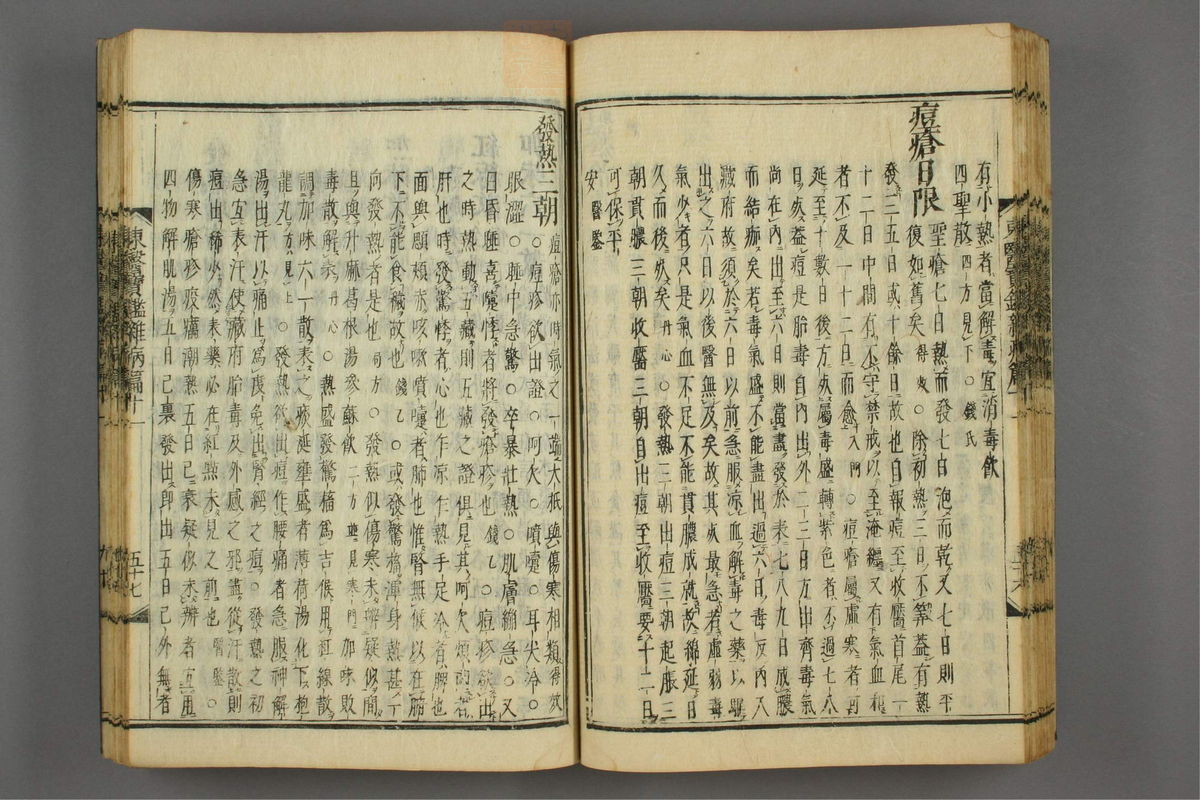 有小熱者當解毒宜消毒飲
四聖散四方見下○錢氏
痘瘡日限
聖瘡七日熱而發七日泡而乾又七日則平
復如舊矣得效○除初熱三日不筭蓋有熱
發三五日或十餘日故也自報痘至收靨首尾一
十二日中間有不守禁戒以至淹纏又有氣血和
者不及一十二日而愈入門○痘瘡屬虛寒者可
延至十數日後方死屬毒盛轉紫色者不過七八
日死盖痘是胎毒自內出外二三日方出齊毒氣
尚在內出至六日則當盡發於表七八九日成膿
而結痂矣若毒氣盛不能盡出過六日毒反內入
藏府故須於六日以前急服凉血解毒之藥以驅
出之六日以後醫無及矣故其死最急若虛弱毒
氣少者只是氣血不足不能貫膿成就故綿延日
久而後死矣丹心○發熱三朝出痘三朝起脹三
朝貫膿三朝收靨三朝自出痘至收靨要十二日
可保平
安醫鑑
發熱三朝
痘瘡亦時氣之一端大抵與傷寒相類得效
○痘疹欲出證○呵欠○噴嚏○耳尖冷○
眼澀○睡中急驚○卒暴壯熱○肌膚繃急○又
曰昏睡喜嚏悸者將發瘡疹也錢乙○痘疹欲出
之時熱動五藏則五藏之證俱見其呵欠煩悶者
肝也時發驚悸者心也乍凉乍熱手足冷者脾也
面與顋頰赤咳嗽噴嚏者肺也惟腎無候以在府
下不能食穢故也錢乙○或發驚搐渾身熱甚一
向發熱者是也局方○發熱似傷寒未辨疑似間
且與升麻葛根湯參蘇飲二方並見寒門加味敗
毒散解表丹心○熱盛發驚搐爲吉候用紅線散
調加味六一散表之痰延壅盛者薄荷湯化下抱
龍丸方見上○發熱欲出痘作腰痛者急服神解
湯出汗以痛止爲度免出腎經之痘○發熱之初
急宜表汗使藏府胎毒及外感之邪盡從汗散則
痘出稀少然表藥必在紅點未見之前也醫鑑○
傷寒瘡疹疫癘潮熱五日已表疑似未辨者宜用
四物解肌湯五日已裏發出卽出五日已外無者
東醫寶鑑雜病篇十一
五十七